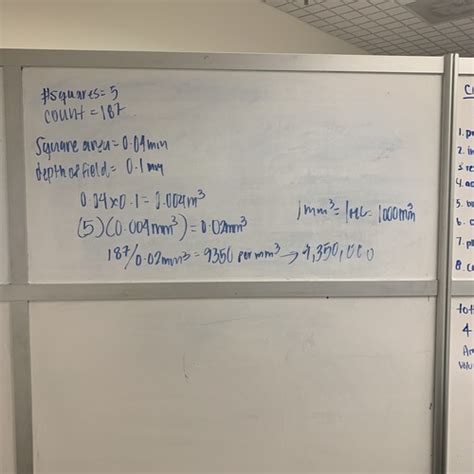 #squares= 5
count = 187
Square area = 0.04mm
depth of field = 0.1 mm
0.04x0.1 = 0.004m³
(5)(0.004mm³) = 0.02mm³
187/0.02mm³ = 9350 per mm³ → 9,350,000
1mm³ = 1
1000mm³
1. p
2. i
4. a
6. c
7. p
8. c
tot
4